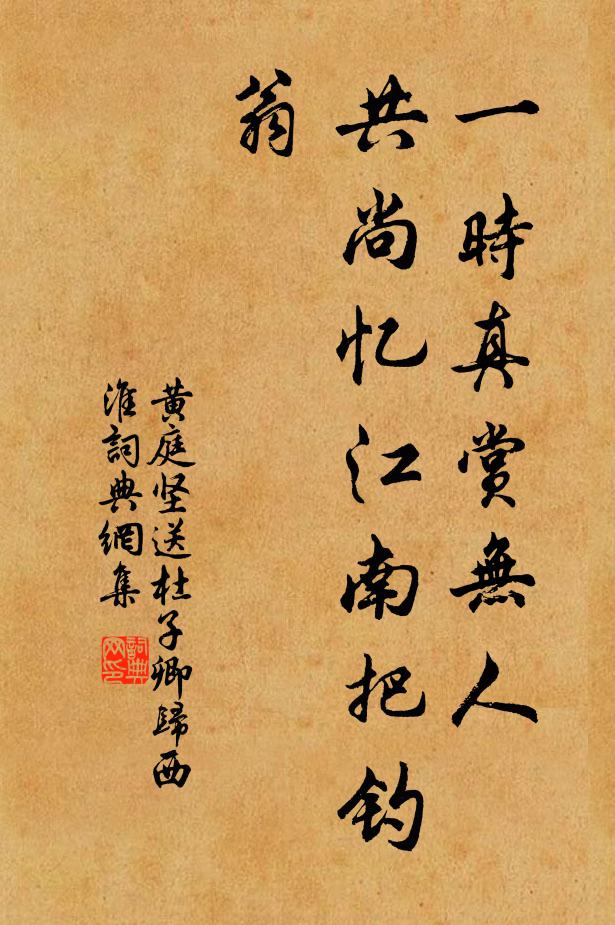 一時真賞無人
共尚忆江南把钓
翁
黄庭坚送杜子卿歸西
淮詞典網集
詞典
网印